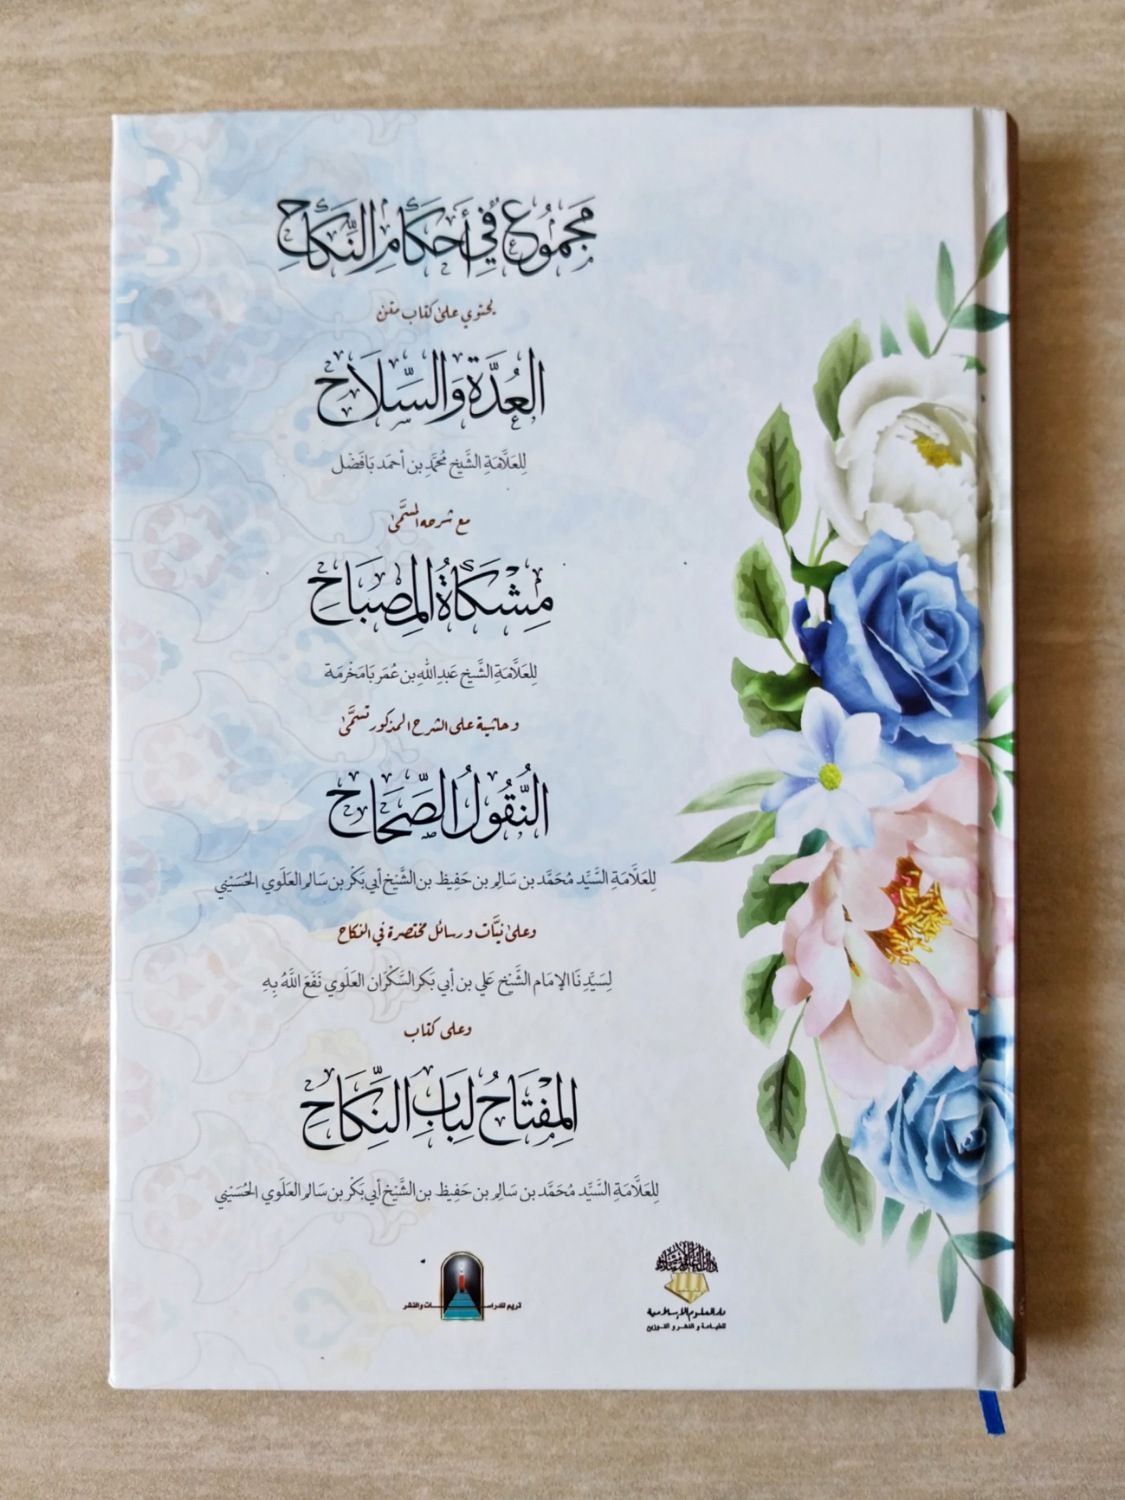 مَجْمُوعٌ فِي أَحْكَامِ النِّكَاحِ
يحتوي على كتاب متن
العُدَّة وَالسِّلَاح
لِلعَلَّامَةِ الشَّيخ مُحَمَّد بن أحمَد بَافَضْل
مع شرحه المسمَّى
مِشْكَاةُ المِصْبَاحِ
لِلعَلَّامَةِ الشَّيخ عَبدِ اللّٰه بن عُمَر بَامَخْرَمَة
وحاشية على الشرح المذكور تسمَّى
النُّقُولُ الصِّحَاح
لِلعَلَّامَةِ السَّيِّد مُحَمَّد بن سَالِم بن حَفِيظ بن الشَّيْخ أبي بَكْر بن سَالِم العَلَوي الحُسَيْنِي
وعلى نيَّات ورسائل مختصرة في النكاح
لِسَيِّدِنَا الإمَام الشَّيْخ عَلي بن أبي بَكر السَّكْرَان العَلَوي نَفَعَ اللَّهُ بِهِ
وعلى كتاب
المِفْتَاحُ لِبَابِ النِّكَاحِ
لِلعَلَّامَةِ السَّيِّد مُحَمَّد بن سَالِم بن حَفِيظ بن الشَّيْخ أبي بَكْر بن سَالِم العَلَوي الحُسَيْنِي
تريم للدراسات والنشر
دار العلوم الإسلامية
للطباعة و النشر و التوزيع